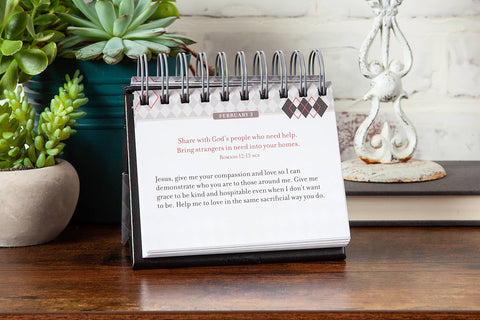 FEBRUARY 2
Share with God's people who need help.
Bring strangers in need into your homes.
ROMANS 12:13 NCV
Jesus, give me your compassion and love so I can
demonstrate who you are to those around me. Give me
grace to be kind and hospitable even when I don't want
to be. Help me to love in the same sacrificial way you do.